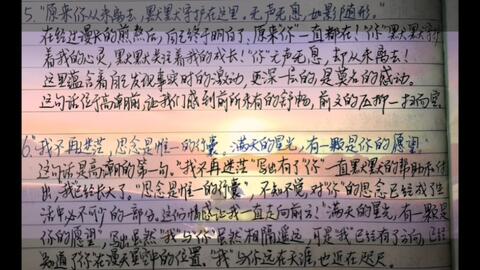 5."原来你从未离去,默默守护在这里。无声无息,如影随形。"
在经过漫长的煎熬后,自己终于明白了,原来"你"一直都在!"你"默默守护
着我的心灵,默默关注着我的成长!"你"无声无息,却从未离去!
这里蕴含着自己发现事实时的激动,更深一层的,是莫名的感动。
这句话位于高潮前,让我们感到前所未有的舒畅,前文的压抑一扫而空。
6."我不再迷茫,思念是惟一的行囊,满天的星光,有一颗是你的愿望
这句话是高潮的第一句。"我不再迷茫"写出有了"你"一直默默的帮助和付
出,我已经长大了。"思念是惟一的行囊",不知不觉,对"你"的思念已经成了生
活中必不可少的一部分。这份情感让我一直走向前方!"满天的星光,有一颗是
你的愿望",写出虽然"我"与"你"虽然相隔遥远,可是"我"已经有了方向,已经
知道了你在漫天星空中的位置。"我"与你远在天涯,也近在咫尺。